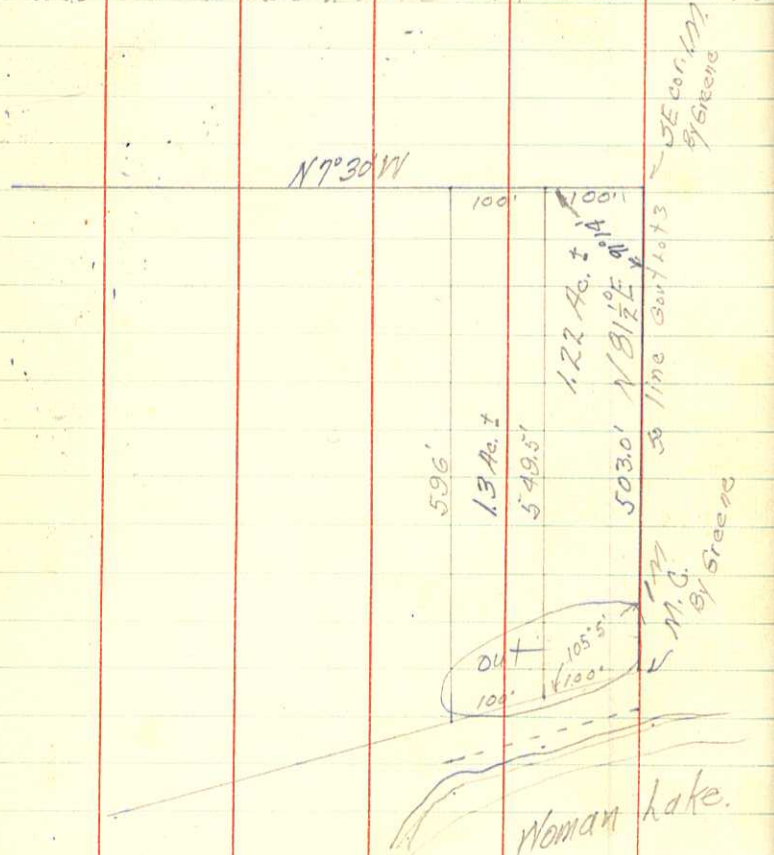 SE cor. I.M.
By Greene
N7°30'W
100'
100'
1.22 Ac. ±
N 81½° E
503.0'
So line Gov't Lot 3
596'
1.3 Ac. ±
549.5'
I M
M. C.
By Greene
out
105.5'
100'
100'
Woman Lake.